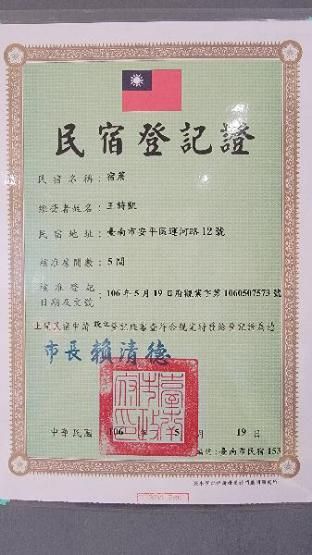 民宿登記證
民宿名稱：宿薦
經營者姓名：王詩凱
民宿地址：臺南市安平區運河路12號
核准房間數：5間
核准登記
日期及文號 106年5月19日府觀業字第1060507573號
上開民宿申請設立登記經審查符合規定特發給登記證為憑
市長賴清德
臺南市政府印
中華民國 106 年 5 月 19 日
編號：臺南市民宿153